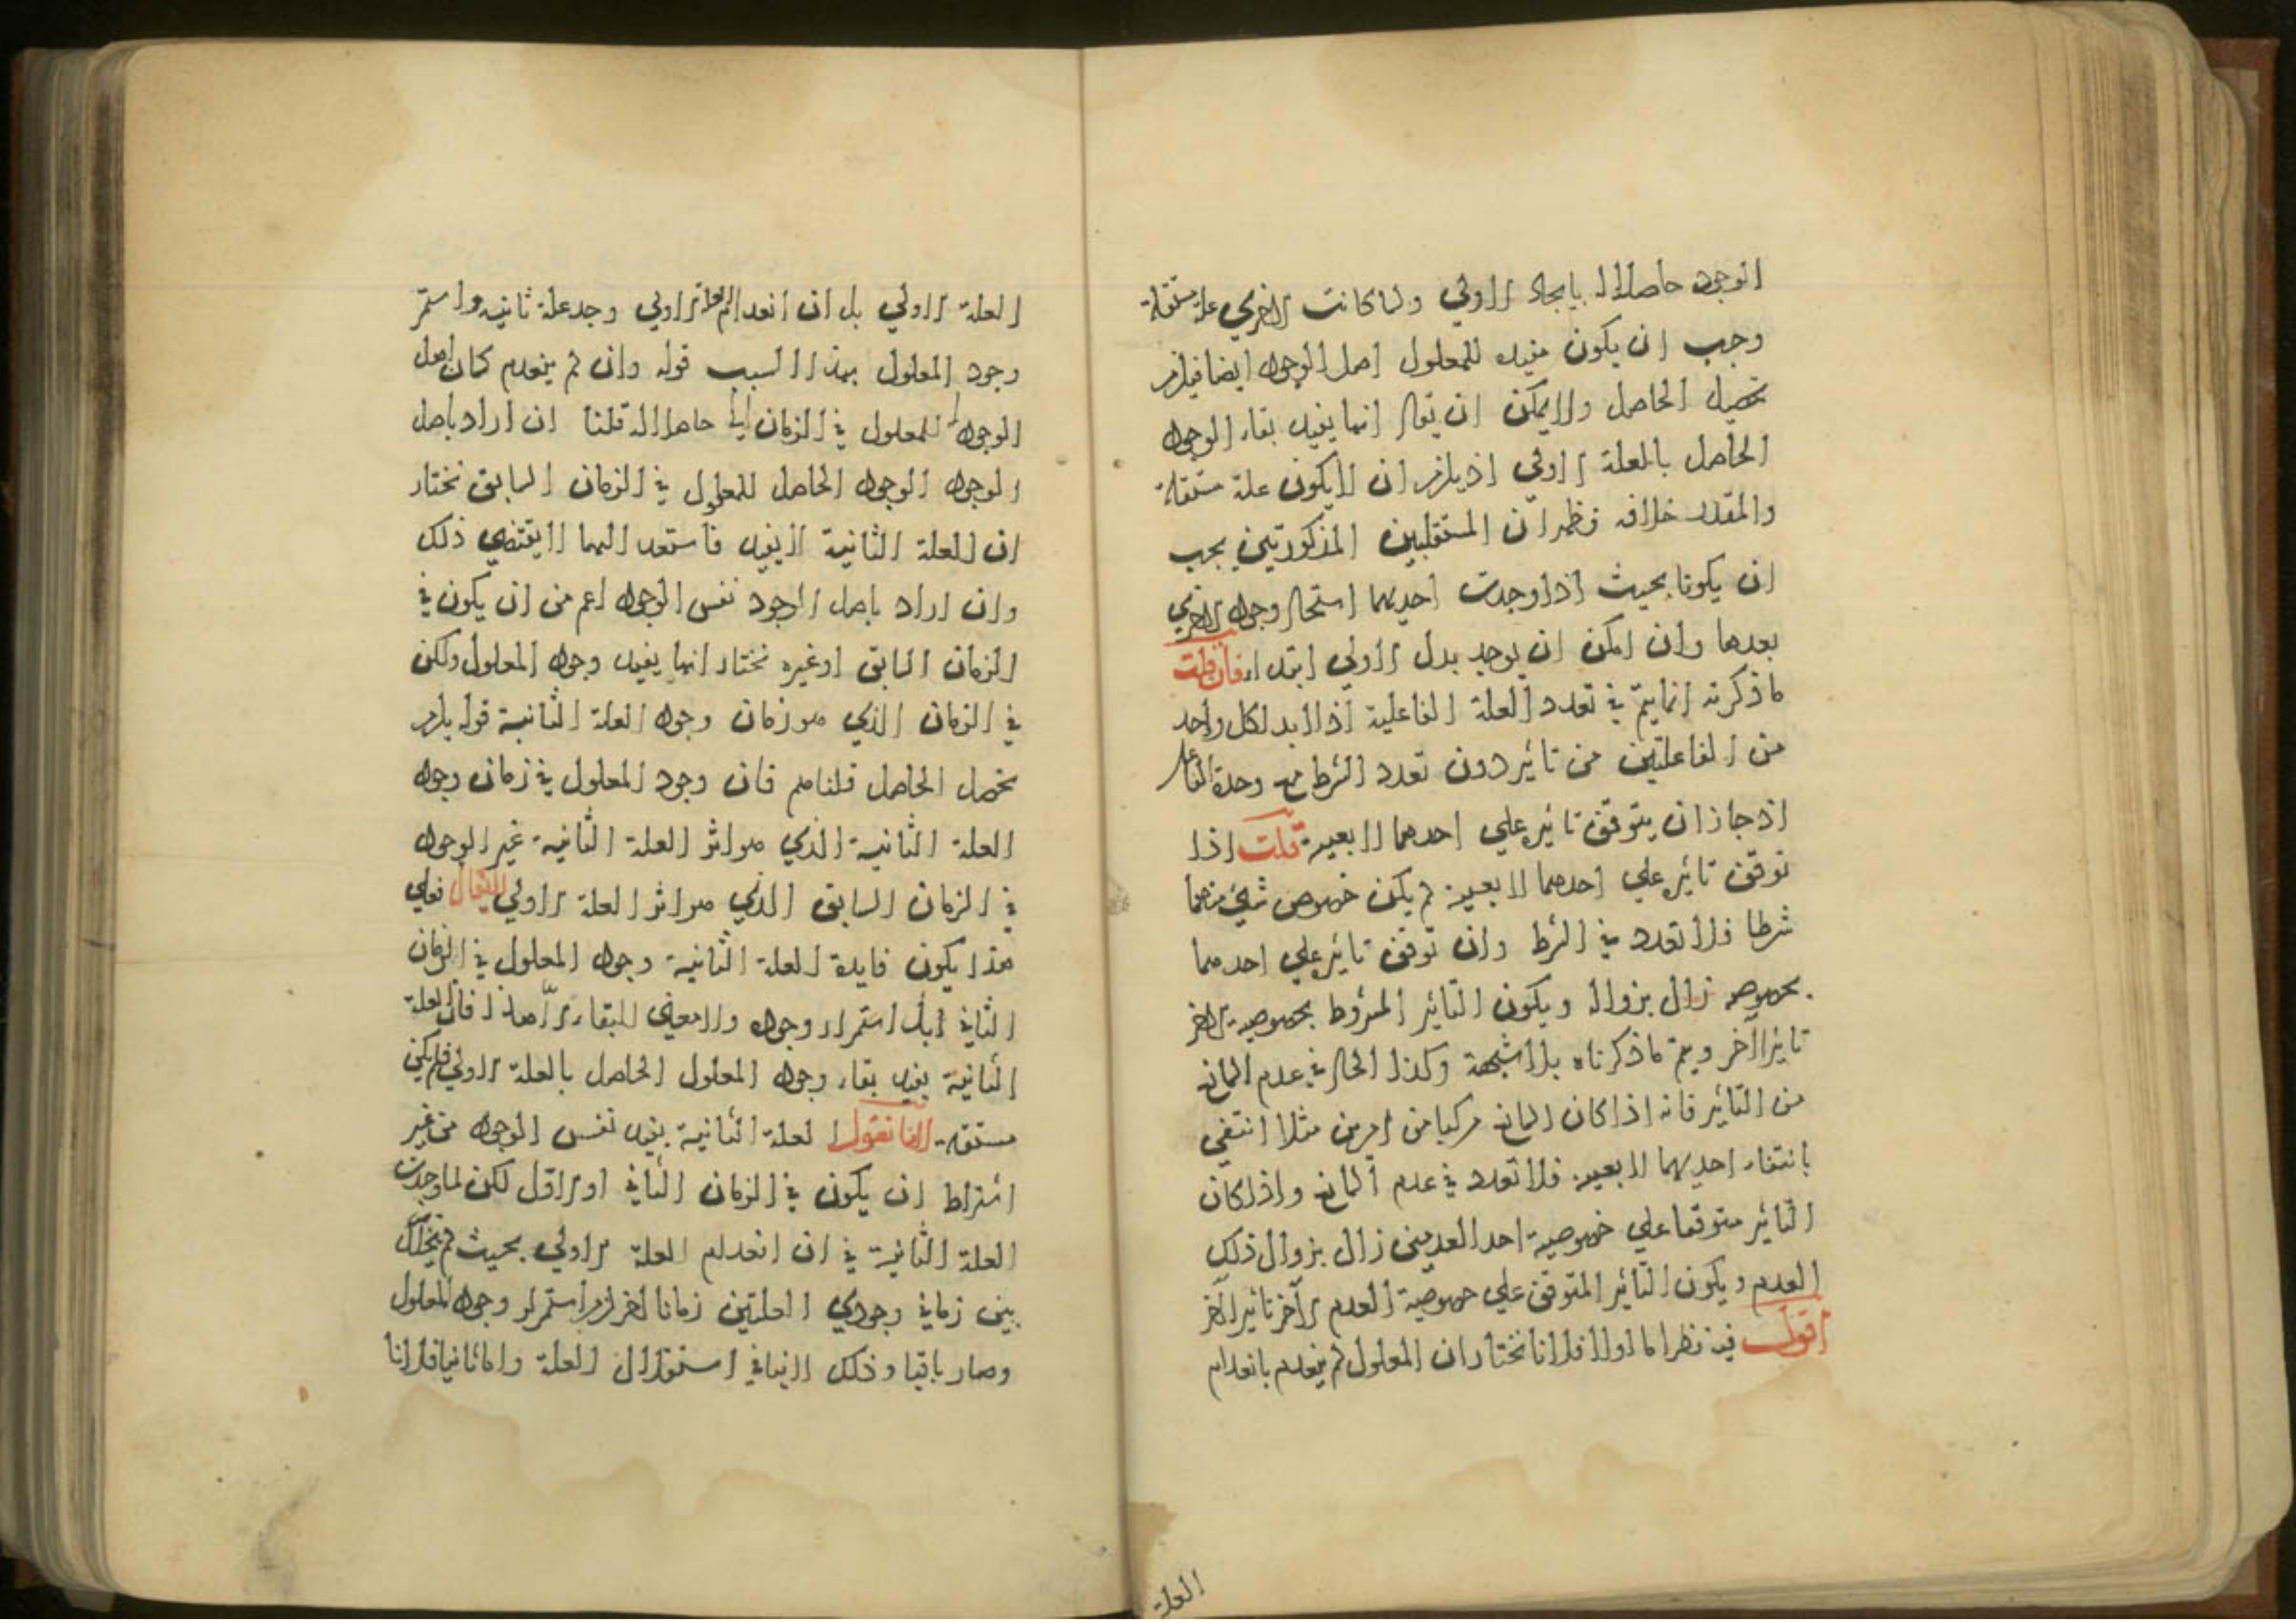 الوجود حاصلا له بايجاد الاولي ولما كانت الاخري علة مستقلة
وجب ان يكون مفيده للمعلول اصل الوجود ايضا فيلزم
تحصيل الحاصل ولا يمكن ان يقال انما يفيد بقاء الوجود
الحاصل بالعلة الاولي اذ يلزم ان لا يكون علة مستقلة
والمقدر خلافه فظهر ان المستقلتين المذكورتين يجب
ان يكونا بحيث اذا وجدت احديهما استحال وجود الاخري
بعدها وان امكن ان يوجد بدل الاولي ابتداء فان قلت
ما ذكرته انما يتم في تعدد العلة الفاعلية اذ لا بد لكل واحد
من الفاعلتين من تاثير دون تعدد الشرط مع وحدة الفاعل
اذ جاز ان يتوقف تاثيره علي احدهما لا بعينه قلت اذا
توقف تاثيره علي احدهما لا بعينه لم يكن خصوص شئ منهما
شرطا فلا تعدد في الشرط وان توقف تاثيره علي احدهما
بخصوصه زال بزواله ويكون التاثير المشروط بخصوصية الاخر
تاثيرا آخر ويتم ما ذكرناه بلا شبهة وكذا الحال في عدم المانع
من التاثير فانه اذا كان المانع مركبا من امرين مثلا انتفي
بانتفاء احديهما لا بعينه فلا تعدد في عدم المانع واذا كان
التاثير متوقفا علي خصوصية احد العدمين زال بزوال ذلك
العدم ويكون التاثير المتوقف علي خصوصية العدم الآخر تاثيرا آخر
اقول فيه نظر اما اولا فلانا نختار ان المعلول لم ينعدم بانعدام
العلة
العلة الاولي بل ان انعدام العلة الاولي وجد علة ثانية واستمر
وجود المعلول بهذا السبب قوله وان لم ينعدم كان اصل
الوجود للمعلول في الزمان حاصلا له قلنا ان اراد باصل
الوجود الوجود الحاصل للمعلول في الزمان السابق نختار
ان العلة الثانية لا يفيد لا يقتضي ذلك
وان اراد باصل الوجود نفس الوجود اعم من ان يكون في
الزمان السابق او غيره نختار انها يفيد وجود المعلول ولكن
في الزمان الذي هو زمان وجود العلة الثانية قوله يلزم
تحصيل الحاصل قلنا مم فان وجود المعلول في زمان وجود
العلة الثانية الذي هو اثر العلة الثانية غير الوجود
في الزمان السابق الذي هو اثر العلة الاولي لا يقال فعلي
هذا يكون فايدة العلة الثانية وجود المعلول في الزمان
الثاني استمرار وجوده ولا معني للبقاء الا هذا فان العلة
الثانية يفيد بقاء وجود المعلول الحاصل بالعلة الاولي فلم يكن
مستقلة لانا نقول العلة الثانية يفيد نفس الوجود من غير
اشتراط ان يكون في الزمان الثاني او الاول لكن لما وجدت
العلة الثانية في ان انعدام العلة الاولي بحيث لم يتخلل
بين زماني وجودي العلتين زمانا اخر لزم استمرار وجود المعلول
وصار باقيا وذلك لا ينافي استقلال العلة واما ثانيا فلانا